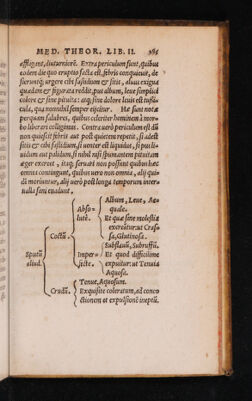 MED. THEOR. LIB. II.
affligent, liutarnierē. Extra periculum sunt, quibus
eodem die quo eruptio facta est, febris conquieuit, de
sieruntq́; urgere cibi fastidium & sitis, aluus exigua
quædam e figurata reddit, pus album, leue simplici
colore & sine pituita: atq; sine dolore leuis est tussi-
cula, qua nonnihil semper eijcitur. Hæ sunt notæ
perquam salubres, quibus celeriter hominem à mor-
bo liberari colligimus. Contra uerò periculum est cùm
non quiescit febris aut post quietem repetit, si deest
sitis & cibi fastidium, si uenter est liquidus, si pus li-
uidum aut palidum, si nihil nisi spumantem pituitam
æger excreat, itaq; seruari non possunt quibus hæc
omnia contingunt, quibus uero non omnia, alij qui-
dē moriuntur, alij uerò post longa temporum inter-
ualla sani euadunt.
Sputū
aliud.
Coctū.
Abso-
lutè.
Album, Leue, Ae-
quale.
Et quæ sine molestia
excreātur: ut Cras-
sa, Glutinosa.
Imper-
fecte.
Subflauū, Subruffū.
Et quod difficilime
expuitur: ut Tenuia
Aquosa.
Crudū.
Tenue, Aquosum.
Exquisite coloratum, ad conco-
ctionem et expulsionē ineptū.